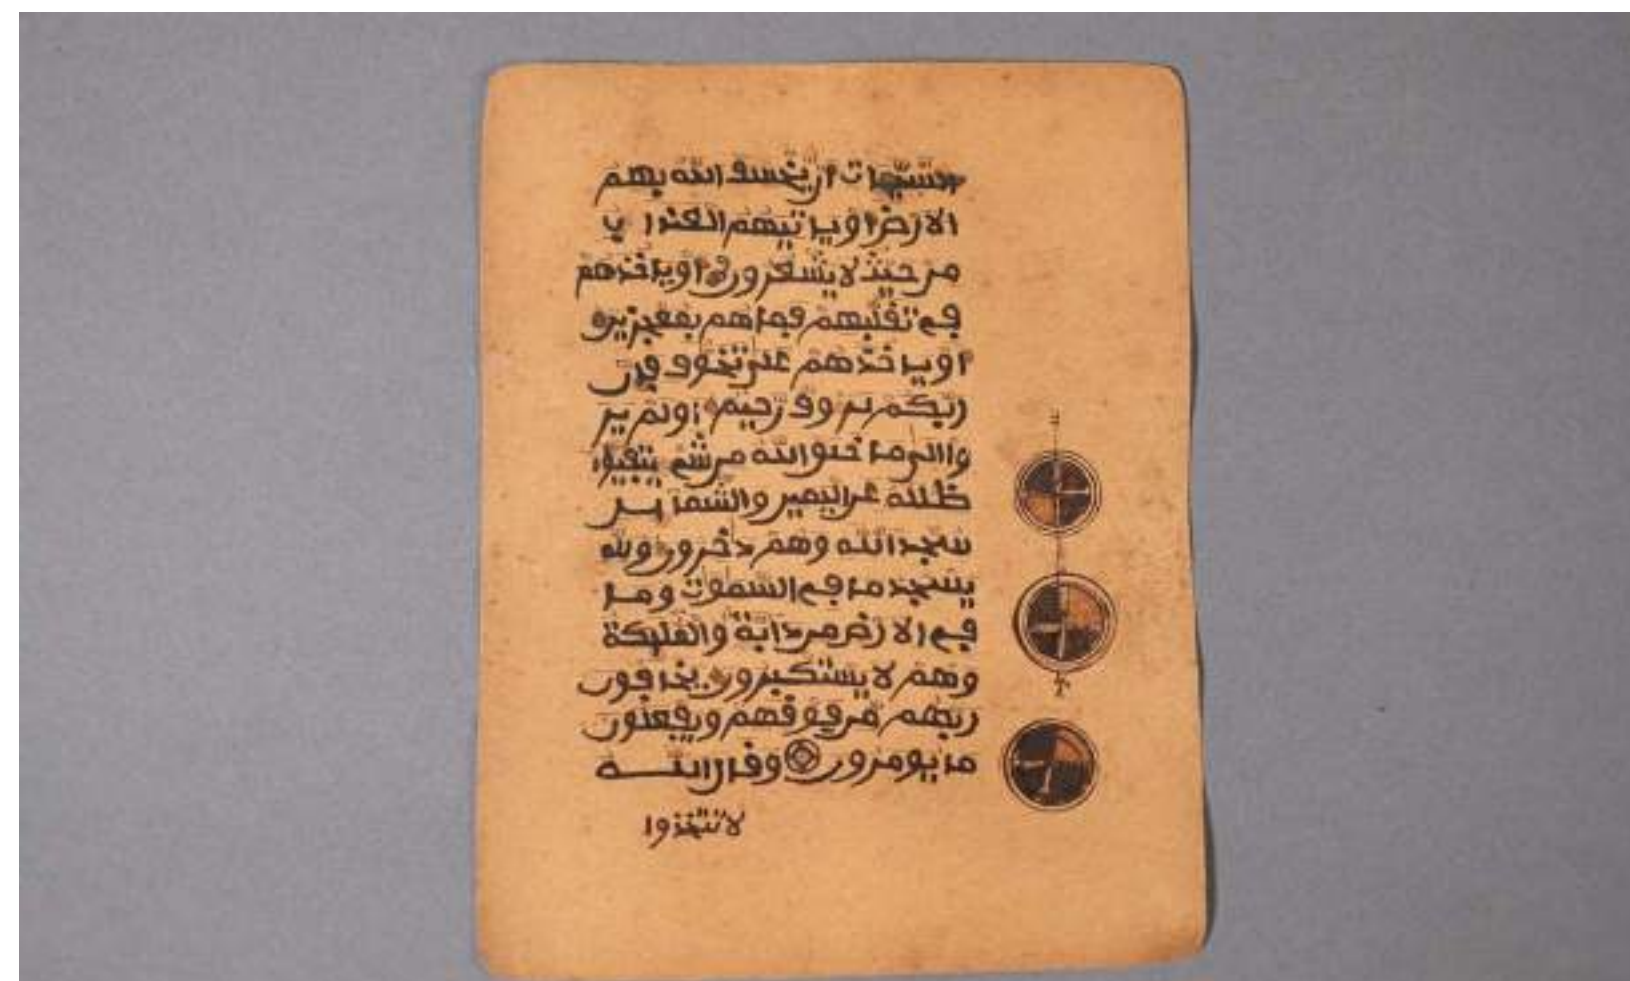 السيات ان يخسف الله بهم
الارض او ياتيهم العذاب
من حيث لا يشعرون او ياخذهم
في تقلبهم فما هم بمعجزين
او ياخذهم على تخوف فان
ربكم لروف رحيم اولم ير
وا الى ما خلو الله من شي يتفيوا
ظلله عن اليمين والشمايل
سجدا لله وهم دخرون ولله
يسجد ما في السموت وما
في الارض من دابة والمليكة
وهم لا يستكبرون يخافون
ربهم من فوقهم ويفعلون
ما يومرون وقال الله
لا تتخذوا